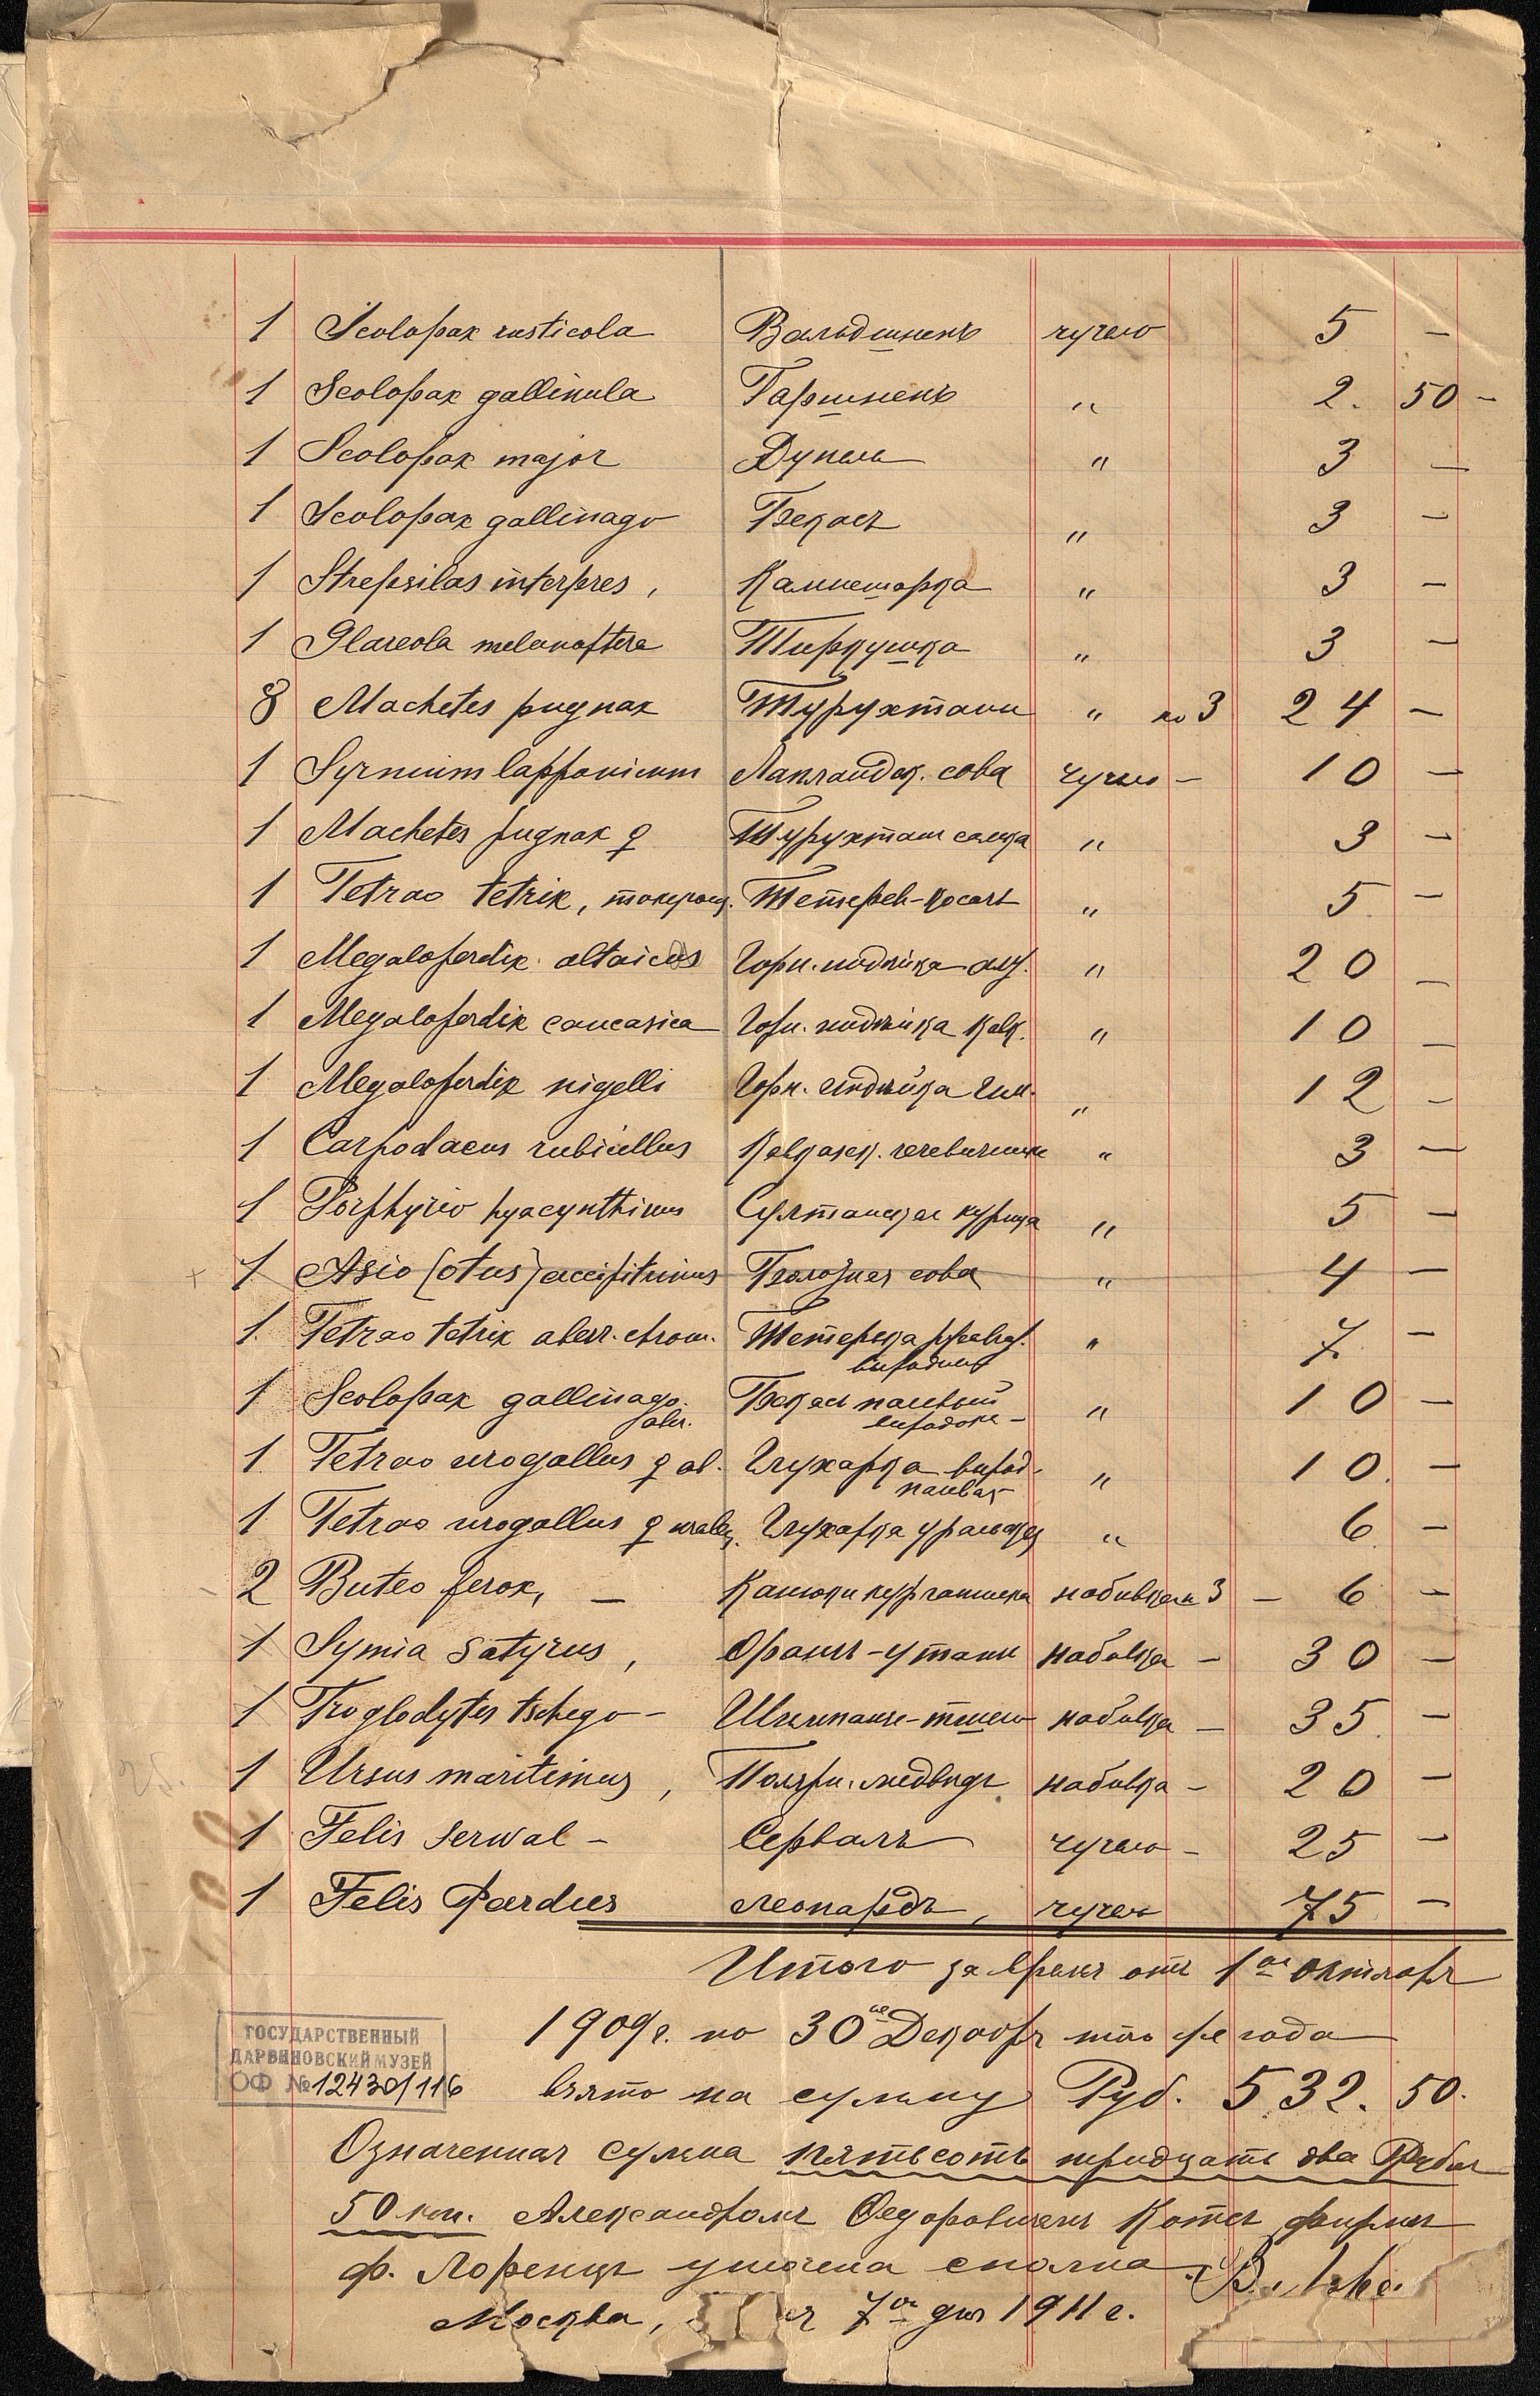 1 Scolopax rusticola Вальдшнепъ чучело 5 –
1 Scolopax gallinula Гаршнепъ " 2. 50 –
1 Scolopax major Дупель " 3 –
1 Scolopax gallinago Бекасъ " 3 –
1 Strepsilas interpres, Камнешарка " 3 –
1 Glareola melanoptera Тиркушка " 3 –
8 Machetes pugnax Турухтани " по 3 24 –
1 Syrnium lapponicum Лапландск. сова чучело – 10 –
1 Machetes pugnax ♀ Турухтан самка " 3 –
1 Tetrao tetrix, токующ. Тетерев-косачъ " 5 –
1 Megaloperdix altaicus Горн. индѣйка алт. " 20 –
1 Megaloperdix caucasica Горн. индѣйка кавк. " 10 –
1 Megaloperdix nigelli Горн. индѣйка Гим. " 12 –
1 Carpodacus rubicillus Кавказск. чечевичникъ " 3 –
1 Porphyrio hyacynthinus Султанская курица " 5 –
1 Asio (otus) accipitrinus Болотная сова " 4 –
1. Tetrao tetrix aberr. chrom. Тетерька " 7. –
выродокъ
1 Scolopax gallinago Бекасъ палевый " 10 –
aber. выродокъ –
1. Tetrao urogallus ♀ ab. Глухарка вырод- " 10. –
палевая
1 Tetrao urogallus ♀ uralens. Глухарка уральская " 6 –
2 Buteo ferox, – Канюки курганники набивка 3 – 6 –
1 Symia satyrus, Орангъ-утанъ набивка – 30 –
1 Troglodytes tschego – Шимпанзе-тшего набивка – 35. –
1 Ursus maritimus, Полярн. медвѣдь набивка – 20 –
1 Felis serwal – Сервалъ чучело – 25 –
1 Felis Pardus леопардъ, чучело 75 –
Итого за время отъ 1го Октября
1909 г. по 30ое Декабря того же года
взято на сумму Руб. 532. 50.
ГОСУДАРСТВЕННЫЙ
ДАРВИНОВСКИЙ МУЗЕЙ
ОФ № 12430/116
Означенная сумма пятьсотъ тридцать два Рубля
50 коп. Александромъ Федоровичемъ Котсъ фирмѣ
Ф. Лоренцъ уплочена сполна.
Москва, 7го дня 1911 г.